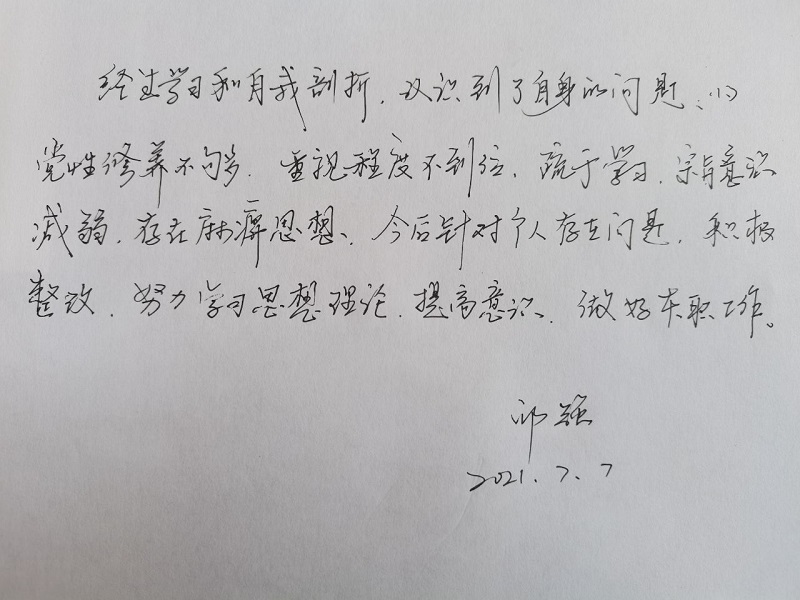 经过学习和自我剖析,认识到了自身的问题:(1)
党性修养不够,重视程度不到位,疏于学习,宗旨意识
减弱,存在麻痹思想。今后针对个人存在问题,积极
整改,努力学习思想理论,提高意识,做好本职工作。
邱强
2021.7.7